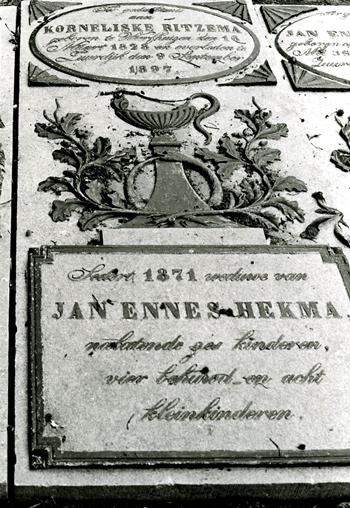 Ter gedachtenis
aan
KORNELISKE RITZEMA
geboren te den 16
Maart 1828 en overleden te
Zuurdijk den 9 September
1897.
JAN EN
geboren
Zuur
Sedert 1871 weduwe van
JAN ENNES HEKMA.
nalatende zes kinderen,
vier behuwd- en acht
kleinkinderen.